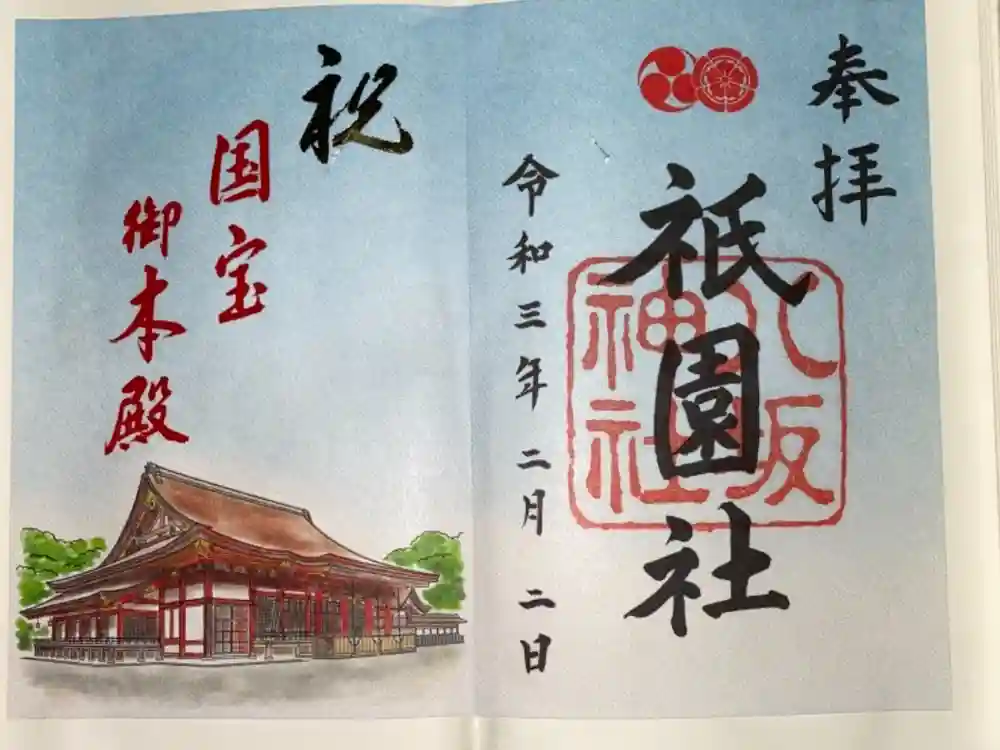 奉拝
祇園社
八坂
神社
令和三年二月二日
祝
国宝
御本殿